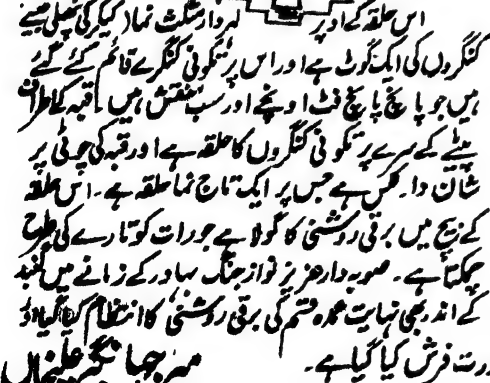 اس حلقہ کے اوپر لہردار مثلث نما (کیکر کی پھلی جیسے
کنگروں کی ایک گوٹ ہے اور اس پر تکونی کنگرے قائم کئے گئے
ہیں جو پانچ پانچ فٹ اونچے اور سب منقش ہیں۔ قبہ کے اطراف
پٹے کے سرے پر تکونی کنگروں کا حلقہ ہے اور قبہ کی چوٹی پر
شان دار کلس ہے جس پر ایک تاج نما حلقہ ہے۔ اس حلقہ
کے بیچ میں برقی روشنی کا گولا ہے جو رات کو تارے کی طرح
چمکتا ہے۔ صوبہ دار عزیز نواز جنگ بہادر کے زمانے میں گنبد
کے اندر بھی نہایت عمدہ قسم کی برقی روشنی کا انتظام کیا گیا اور
فرش کیا گیا ہے۔